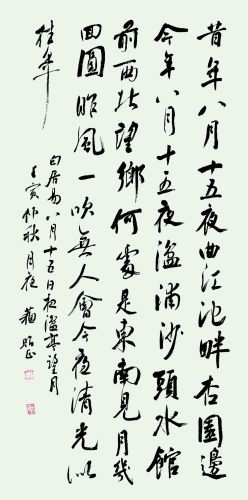 昔年八月十五夜曲江池畔杏園邊
今年八月十五夜湓浦沙頭水館
前西北望鄉何處是東南見月幾
回圓昨風一吹無人會今夜清光似
往年
白居易八月十五日夜湓亭望月
壬寅仲秋月夜